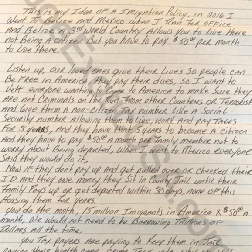 This is my Idea of A Imigration Policy, in 2016 I
Went to Belize and Mexico what I
Belize is 3rd World Country Allows you to live there
not Being a citizen But you have to pay $50 per month
to live there.
Listen up, our loved ones give there lives so people can
Be free in America they pay there dues, so I want to
Vett everyone wanting to come to America to make sure they
are not Criminals on the Run from other Countries, or Terrorist
and Give them A non-citizen number Like a Social
Security number Allowing them to Live, work and pay Taxes
For 5 years, And they have those 5 years to become a citizen
And they have to pay $50 a month per Family member not to
worry About Being deported, when I to Mexico everyone
Said they would do it.
Now if they dont pay up and get pulled over or checked there
ID and they owe money they Sit in Jail until their
Family Pays up or get deported within 30 days, none of this
Housing them for years.
you do the math, 15 million Immigrants in America X $50 a
month, We would not need to be Borrowing Trillions of
Dollars all the time.
you Tax payers Are paying to Keep them in Jail